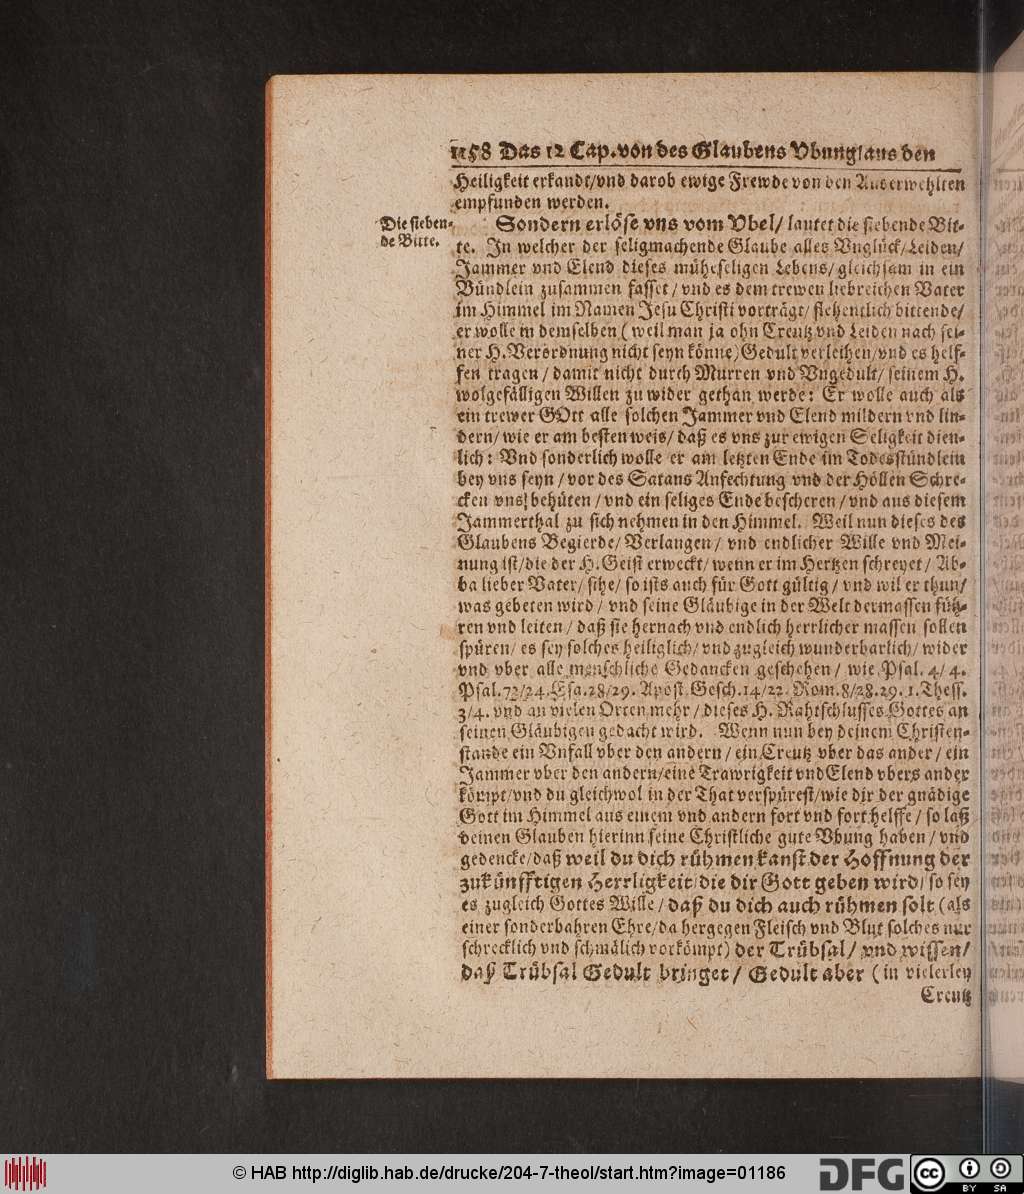 1158 Das 12 Cap. von des Glaubens Vbung/aus den
Heiligkeit erkandt/vnd darob ewige Frewde von den Auserwehlten
empfunden werden.
Die sieben-
de Bitte.
Sondern erlöse vns vom Vbel/ lautet die siebende Bit-
te. In welcher der seligmachende Glaube alles Vnglück/Leiden/
Jammer vnd Elend dieses müheseligen Lebens/ gleichsam in ein
Bündlein zusammen fasset/ vnd es dem trewen liebreichen Vater
im Himmel im Namen Jesu Christi vorträgt/ flehentlich bittende/
er wolle in demselben (weil man ja ohn Creutz vnd Leiden nach sei-
ner H. Verordnung nicht seyn könne) Gedult verleihen/vnd es helf-
fen tragen/ damit nicht durch Murren vnd Vngedult/ seinem H.
wolgefälligen Willen zu wider gethan werde: Er wolle auch als
ein trewer GOtt alle solchen Jammer vnd Elend mildern vnd lin-
dern/ wie er am besten weis/ daß es vns zur ewigen Seligkeit dien-
lich: Vnd sonderlich wolle er am letzten Ende im Todesstündlein
bey vns seyn/ vor des Satans Anfechtung vnd der Höllen Schre-
cken vns behüten/ vnd ein seliges Ende bescheren/ vnd aus diesem
Jammerthal zu sich nehmen in den Himmel. Weil nun dieses des
Glaubens Begierde/ Verlangen/ vnd endlicher Wille vnd Mei-
nung ist/die der H. Geist erweckt/ wenn er im Hertzen schreyet/ Ab-
ba lieber Vater/ sihe/ so ists auch für Gott gültig/ vnd wil er thun/
was gebeten wird/ vnd seine Gläubige in der Welt dermassen füh-
ren vnd leiten/ daß sie hernach vnd endlich herrlicher massen sollen
spüren/ es sey solches heiliglich/ vnd zugleich wunderbarlich/ wider
vnd vber alle menschliche Gedancken geschehen/ wie Psal. 4/4.
Psal. 73/24. Esa. 28/29. Apost. Gesch. 14/22. Rom. 8/28.29. 1. Thess.
3/4. vnd an vielen Orten mehr/ dieses H. Rahtschlusses Gottes an
seinen Gläubigen gedacht wird. Wenn nun bey deinem Christen-
stande ein Vnfall vber den andern/ ein Creutz vber das ander/ ein
Jammer vber den andern/eine Trawrigkeit vnd Elend vbers ander
kömpt/vnd du gleichwol in der That verspürest/wie dir der gnädige
Gott im Himmel aus einem vnd andern fort vnd fort helffe/ so laß
deinen Glauben hierinn seine Christliche gute Vbung haben/ vnd
gedencke/daß weil du dich rühmen kanst der Hoffnung der
zukünfftigen Herrligkeit/die dir Gott geben wird/ so sey
es zugleich Gottes Wille/ daß du dich auch rühmen solt (als
einer sonderbahren Ehre/da hergegen Fleisch vnd Blut solches nur
schrecklich vnd schmälich vorkömpt) der Trübsal/ vnd wissen/
daß Trübsal Gedult bringet/ Gedult aber (in vielerley
Creutz
© HAB http://diglib.hab.de/drucke/204-7-theol/start.htm?image=01186
DFG
cc
BY SA